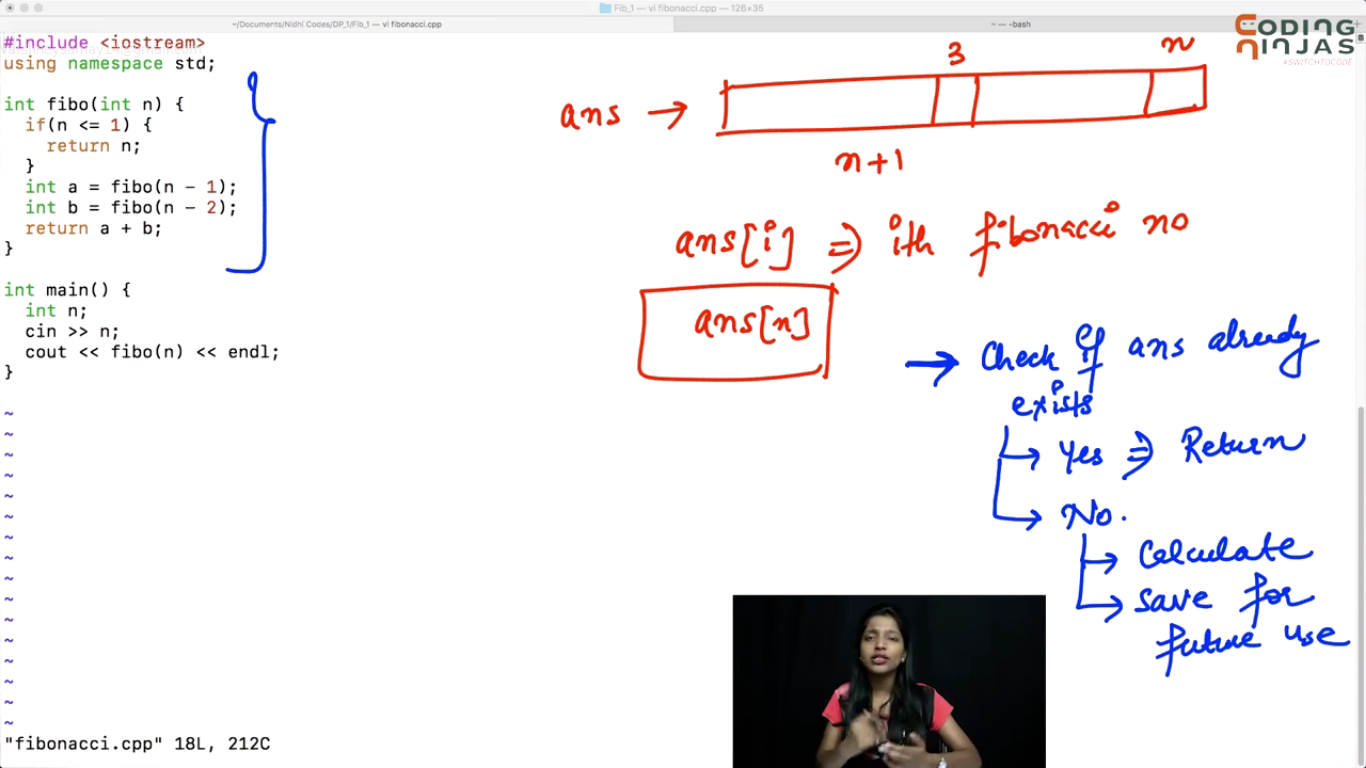 Fib_1 — vi fibonacci.cpp — 126×35
~/Documents/Nidhi Codes/DP_1/Fib_1 — vi fibonacci.cpp
~ — -bash
CODING
NINJAS
#SWITCHTOCODE
#include <iostream>
using namespace std;
int fibo(int n) {
if(n <= 1) {
return n;
}
int a = fibo(n - 1);
int b = fibo(n - 2);
return a + b;
}
int main() {
int n;
cin >> n;
cout << fibo(n) << endl;
}
~
~
~
~
~
~
~
~
~
~
~
~
~
~
~
~
"fibonacci.cpp" 18L, 212C
3 n
ans →
n+1
ans[i] ⇒ ith fibonacci no
ans[n]
→ Check if ans already
exists
→ Yes ⇒ Return
→ No.
→ Calculate
→ Save for
future use